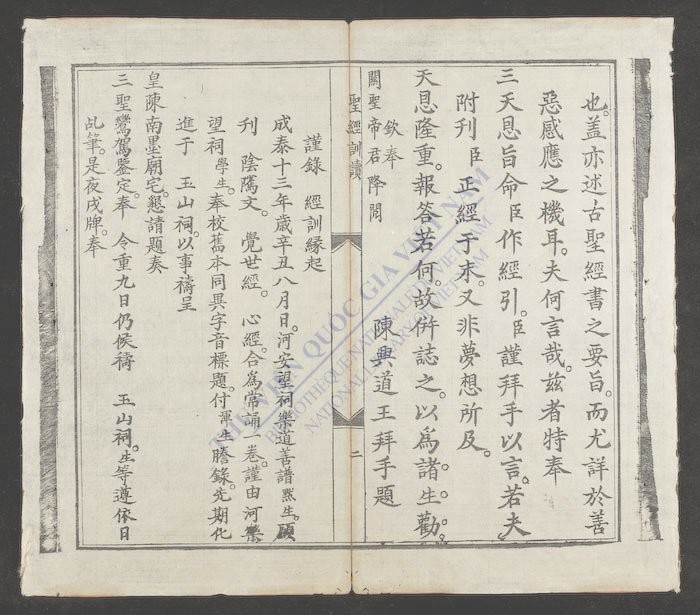 也。盖亦述古聖經書之要旨。而尤詳於善
惡感應之機耳。夫何言哉。茲者特奉
三天恩旨命臣作經引。臣謹拜手以言。若夫
附刊臣正經于末。又非夢想所及。
天恩隆重。報答若何。故併誌之。以爲諸生勸。
欽奉
關聖帝君降閱
陳興道王拜手題
聖經訓讀
二
謹錄 經訓緣起
成泰十三年歲辛丑八月日。河安望祠樂道善譜黙生。
刊 陰隲文。覺世經。心經。合爲常誦一卷。謹由河樂
望祠學生。奉校舊本同異字音標題。付暉生謄錄。先期化
進于 玉山祠。以事禱呈
皇陳南墨廟宅。懇請題奏
三聖鸞駕鑒定。奉 令重九日仍候禱 玉山祠。生等遵依日
乩筆。是夜戌牌。奉
THƯ VIỆN QUỐC GIA VIỆT NAM
BIBLIOTHÈQUE NATIONALE DU VIETNAM
NATIONAL LIBRARY OF VIETNAM